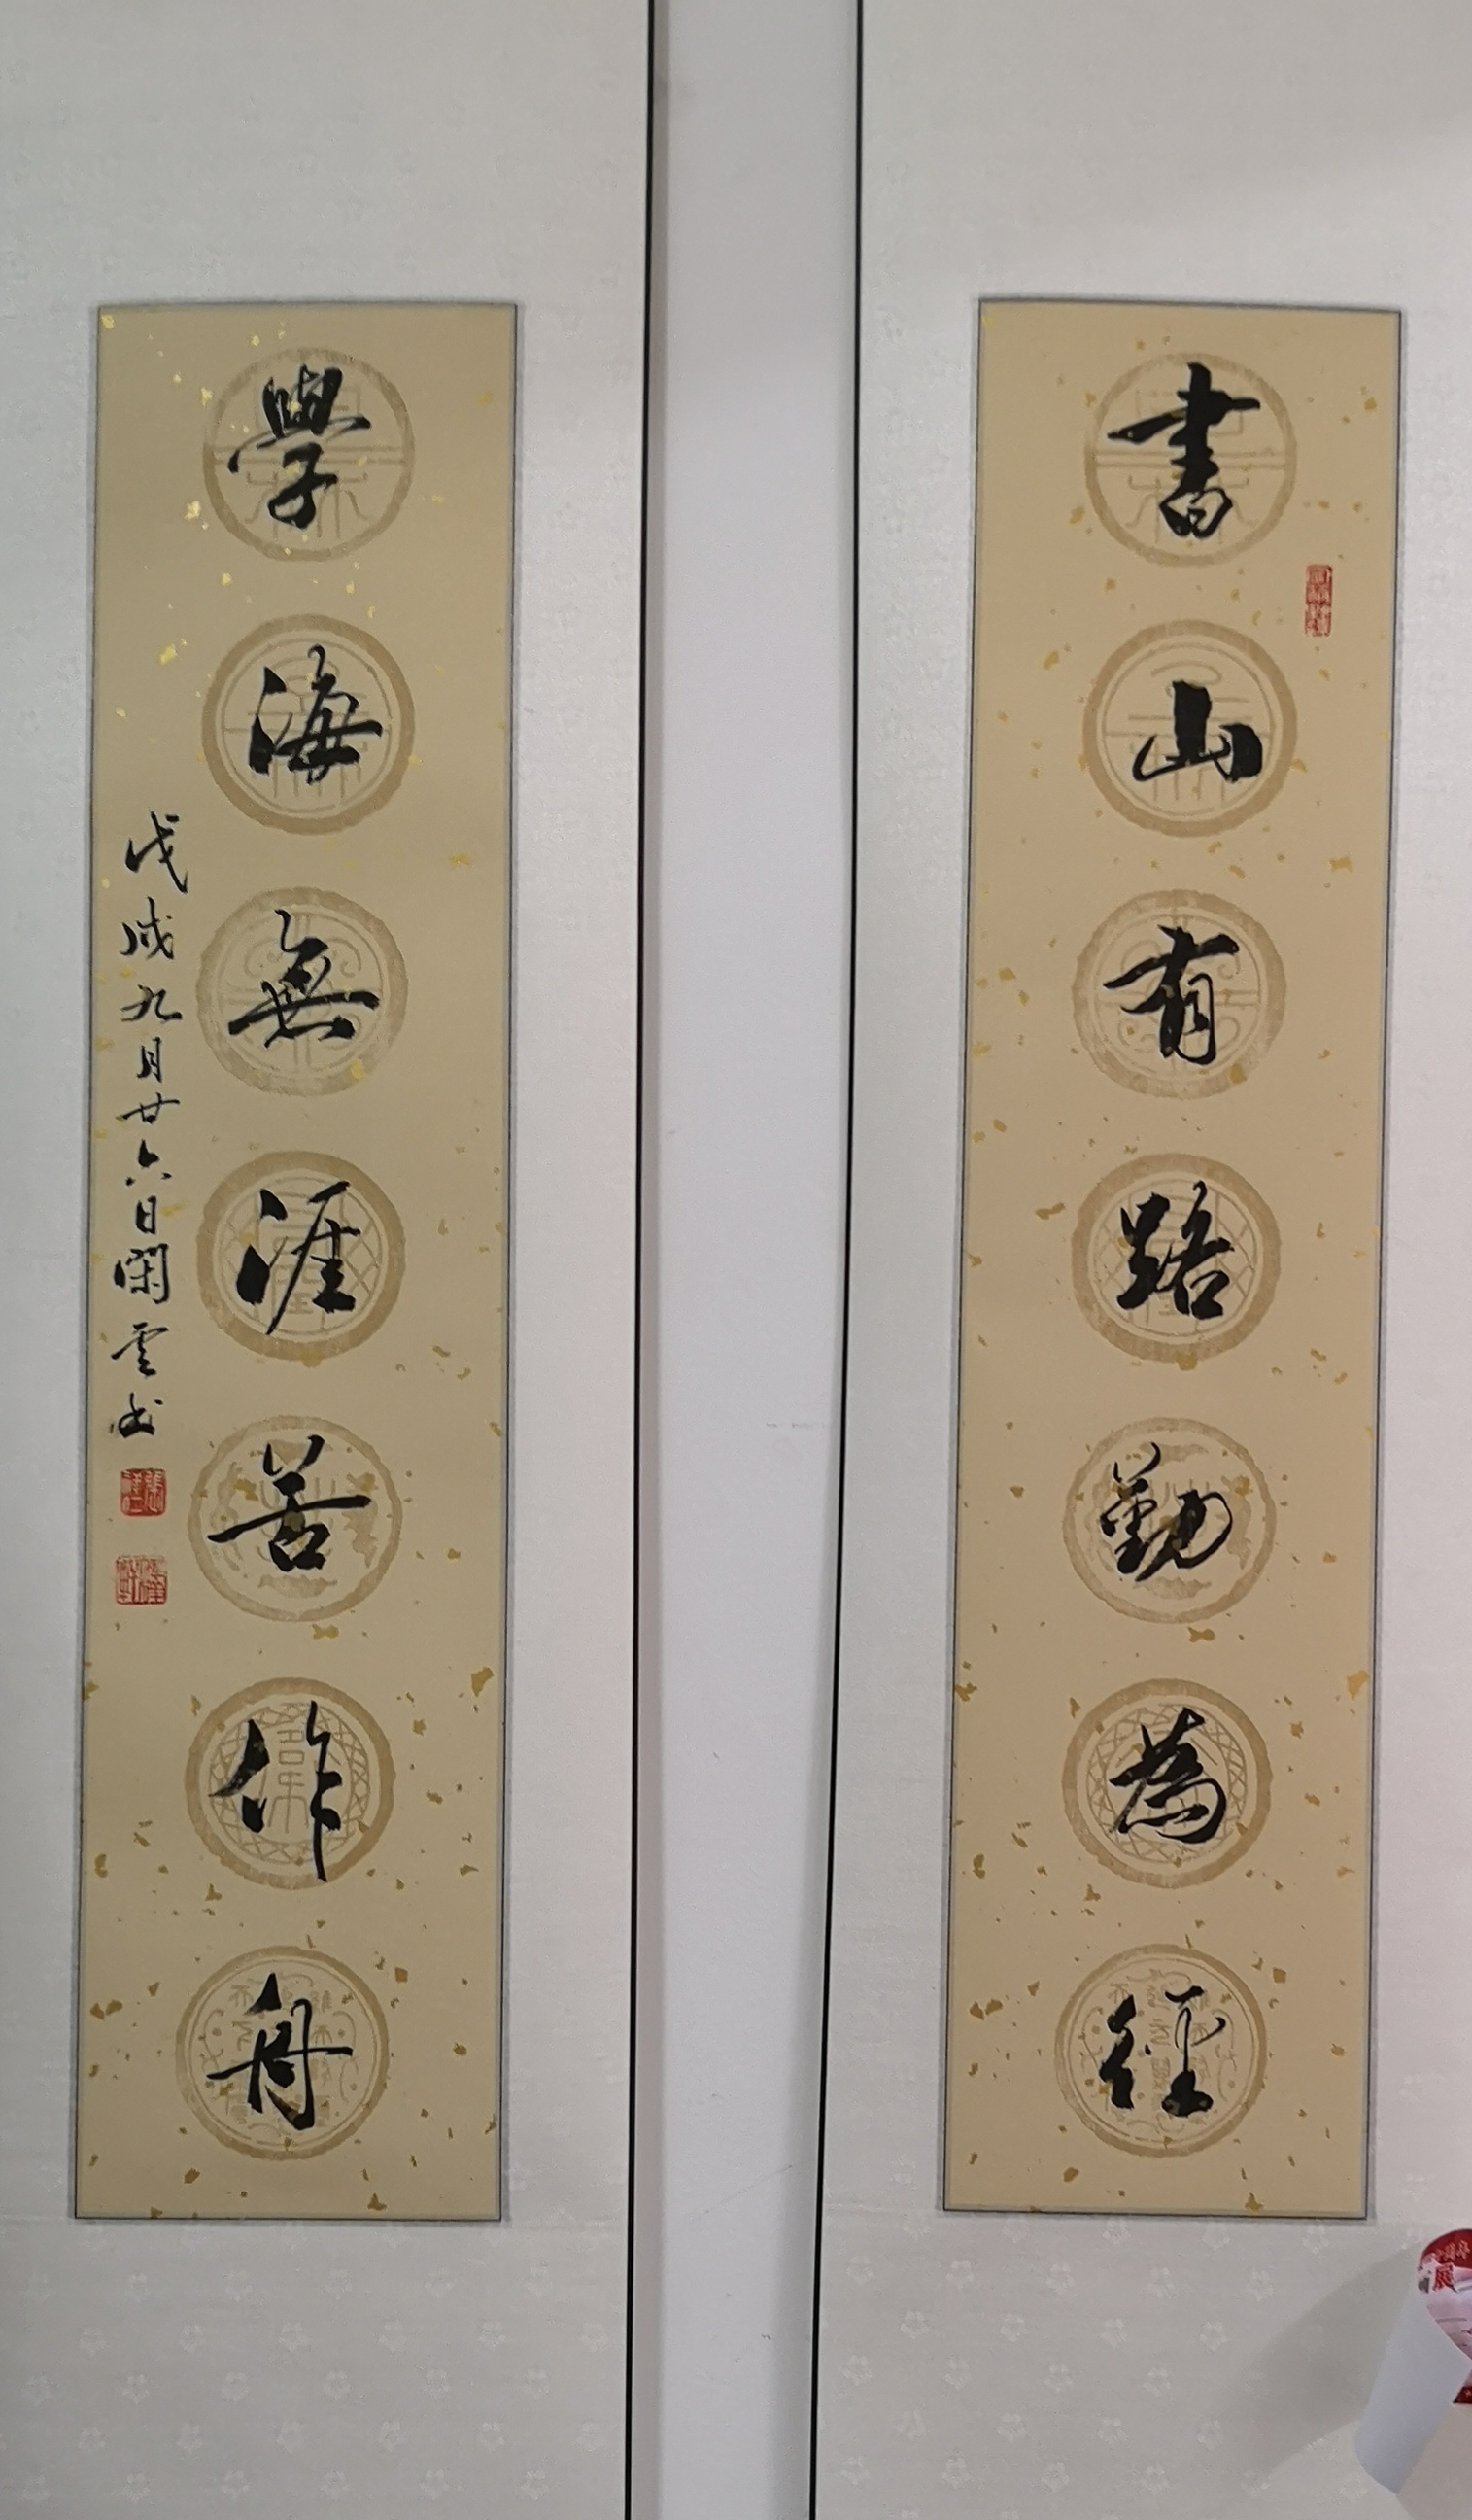 書山有路勤為徑
學海無涯苦作舟
戊戌九月廿六日閑雲书
展